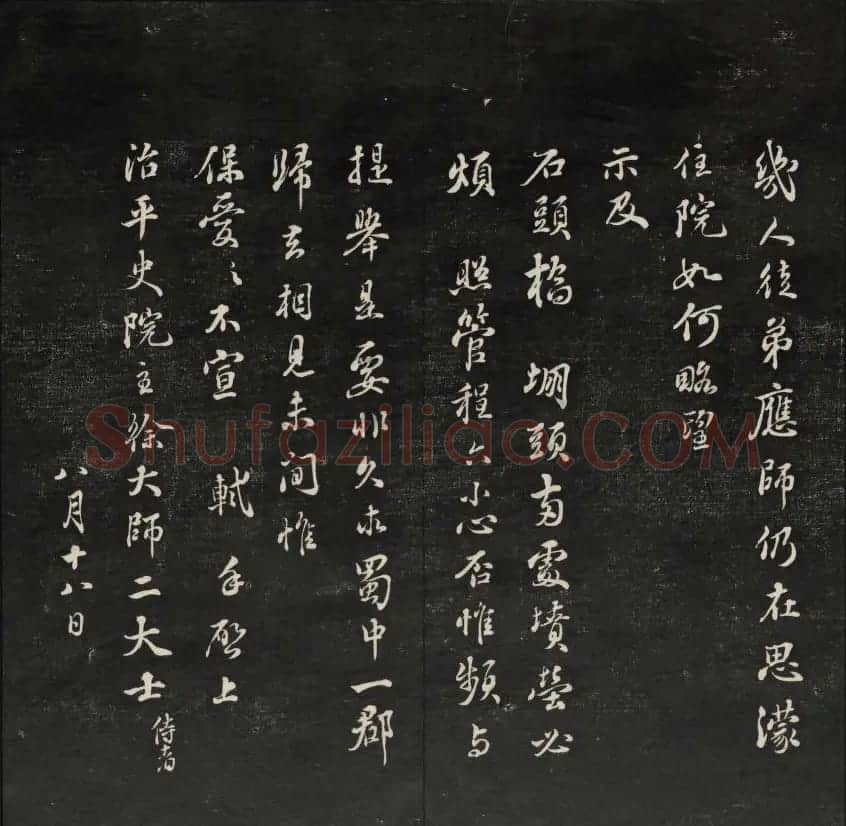 幾人徒弟應師仍在思濛
住院如何略望
示及
石頭橋 堋頭兩處墳塋必
煩 照管程六小心否惟頻與
提舉是要非久求蜀中一郡
歸去相見未間惟
保愛之不宣 軾手啟上
治平史院主徐大師二大士侍者
八月十八日
Shufaziliao.COM